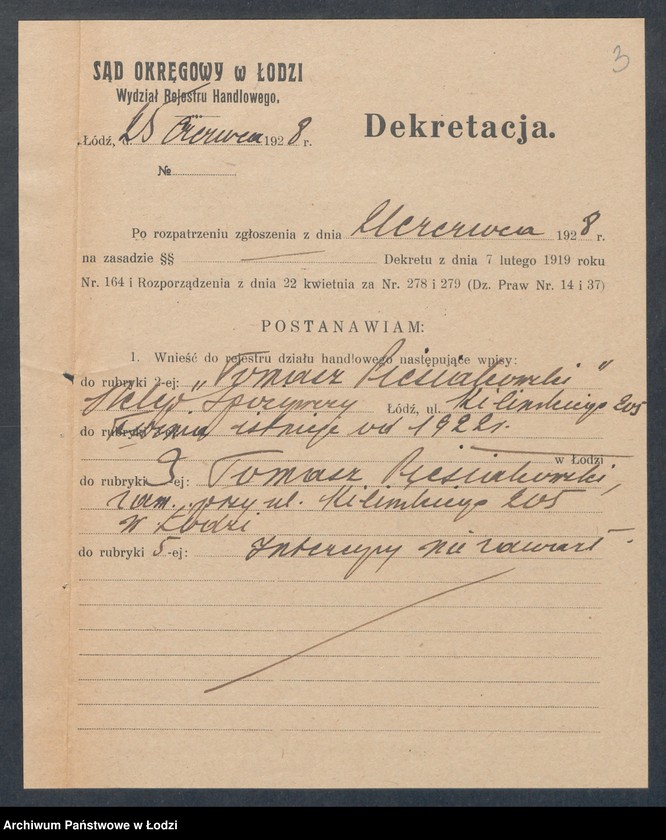 3
SĄD OKRĘGOWY w ŁODZI
Wydział Rejestru Handlowego.
Dekretacja.
Łódź, d. 25 Czerwca 1928 r.
№
Po rozpatrzeniu zgłoszenia z dnia czerwca 1928 r.
na zasadzie §§ — Dekretu z dnia 7 lutego 1919 roku
Nr. 164 i Rozporządzenia z dnia 22 kwietnia za Nr. 278 i 279 (Dz. Praw Nr. 14 i 37)
POSTANAWIAM:
1. Wnieść do rejestru działu handlowego następujące wpisy:
do rubryki 2-ej: „Tomasz"
Sklep Spożywczy Łódź, ul. Kilińskiego 205
do rubryki Firma istnieje od 1922 r.
w Łodzi
do rubryki 3 ej: Tomasz
zam. przy ul. Kilińskiego 205
w Łodzi
do rubryki 5-ej: Intercyzy nie zawarł.
Archiwum Państwowe w Łodzi